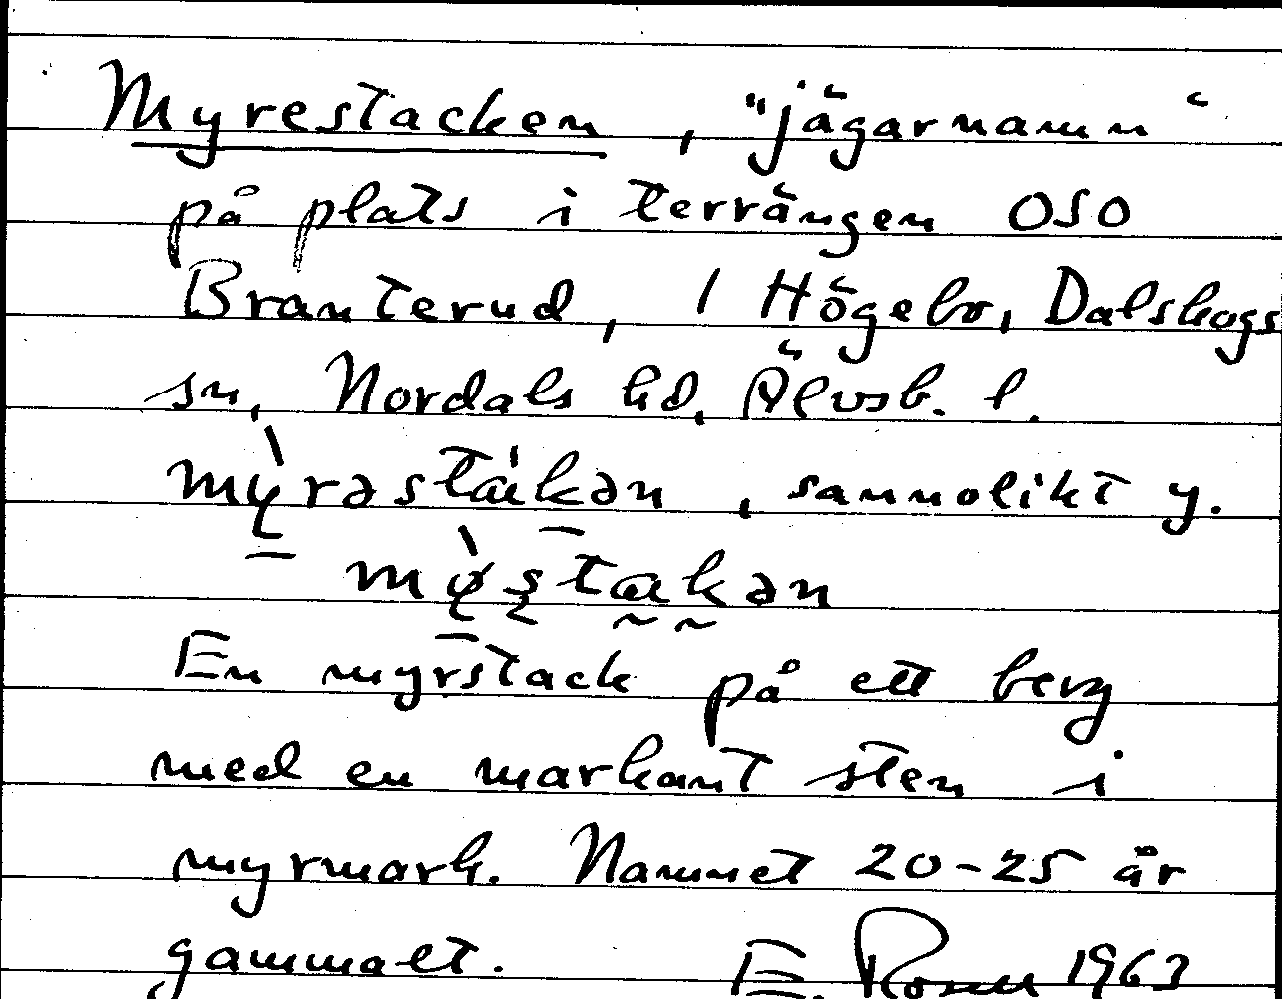 Myrestacken, "jägarnamn"
på plats i terrängen OSO
Branterud, 1 Högebo, Dalskogs
sn, Nordals hd, Älvsb. l.
mỳrəstákən, sannolikt y.
En myrstack på ett berg
med en markant sten i
myrmark. Namnet 20-25 år
gammalt. E. 1963